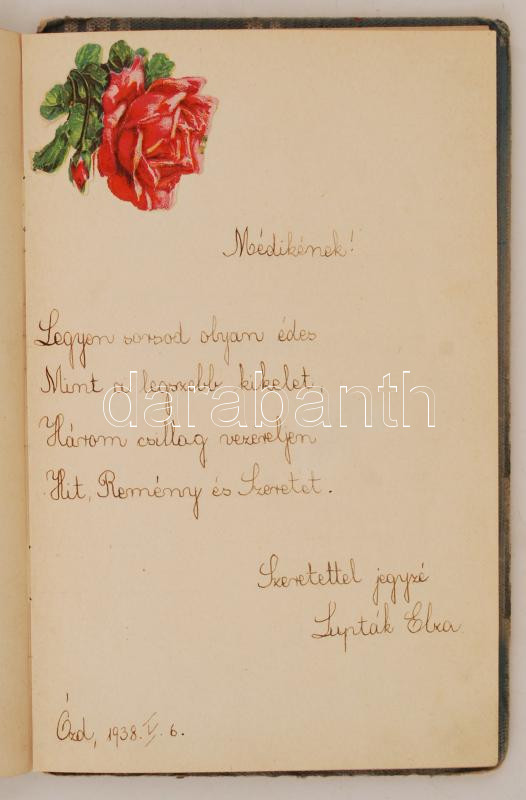 Médikének!
Legyen sorsod olyan édes
Mint a legszebb kikelet,
darabanth
Három csillag vezéreljen
Hit, Remény és Szeretet.
Szeretettel jegyzé
Lupták Elza
Ózd, 1938. V. 6.